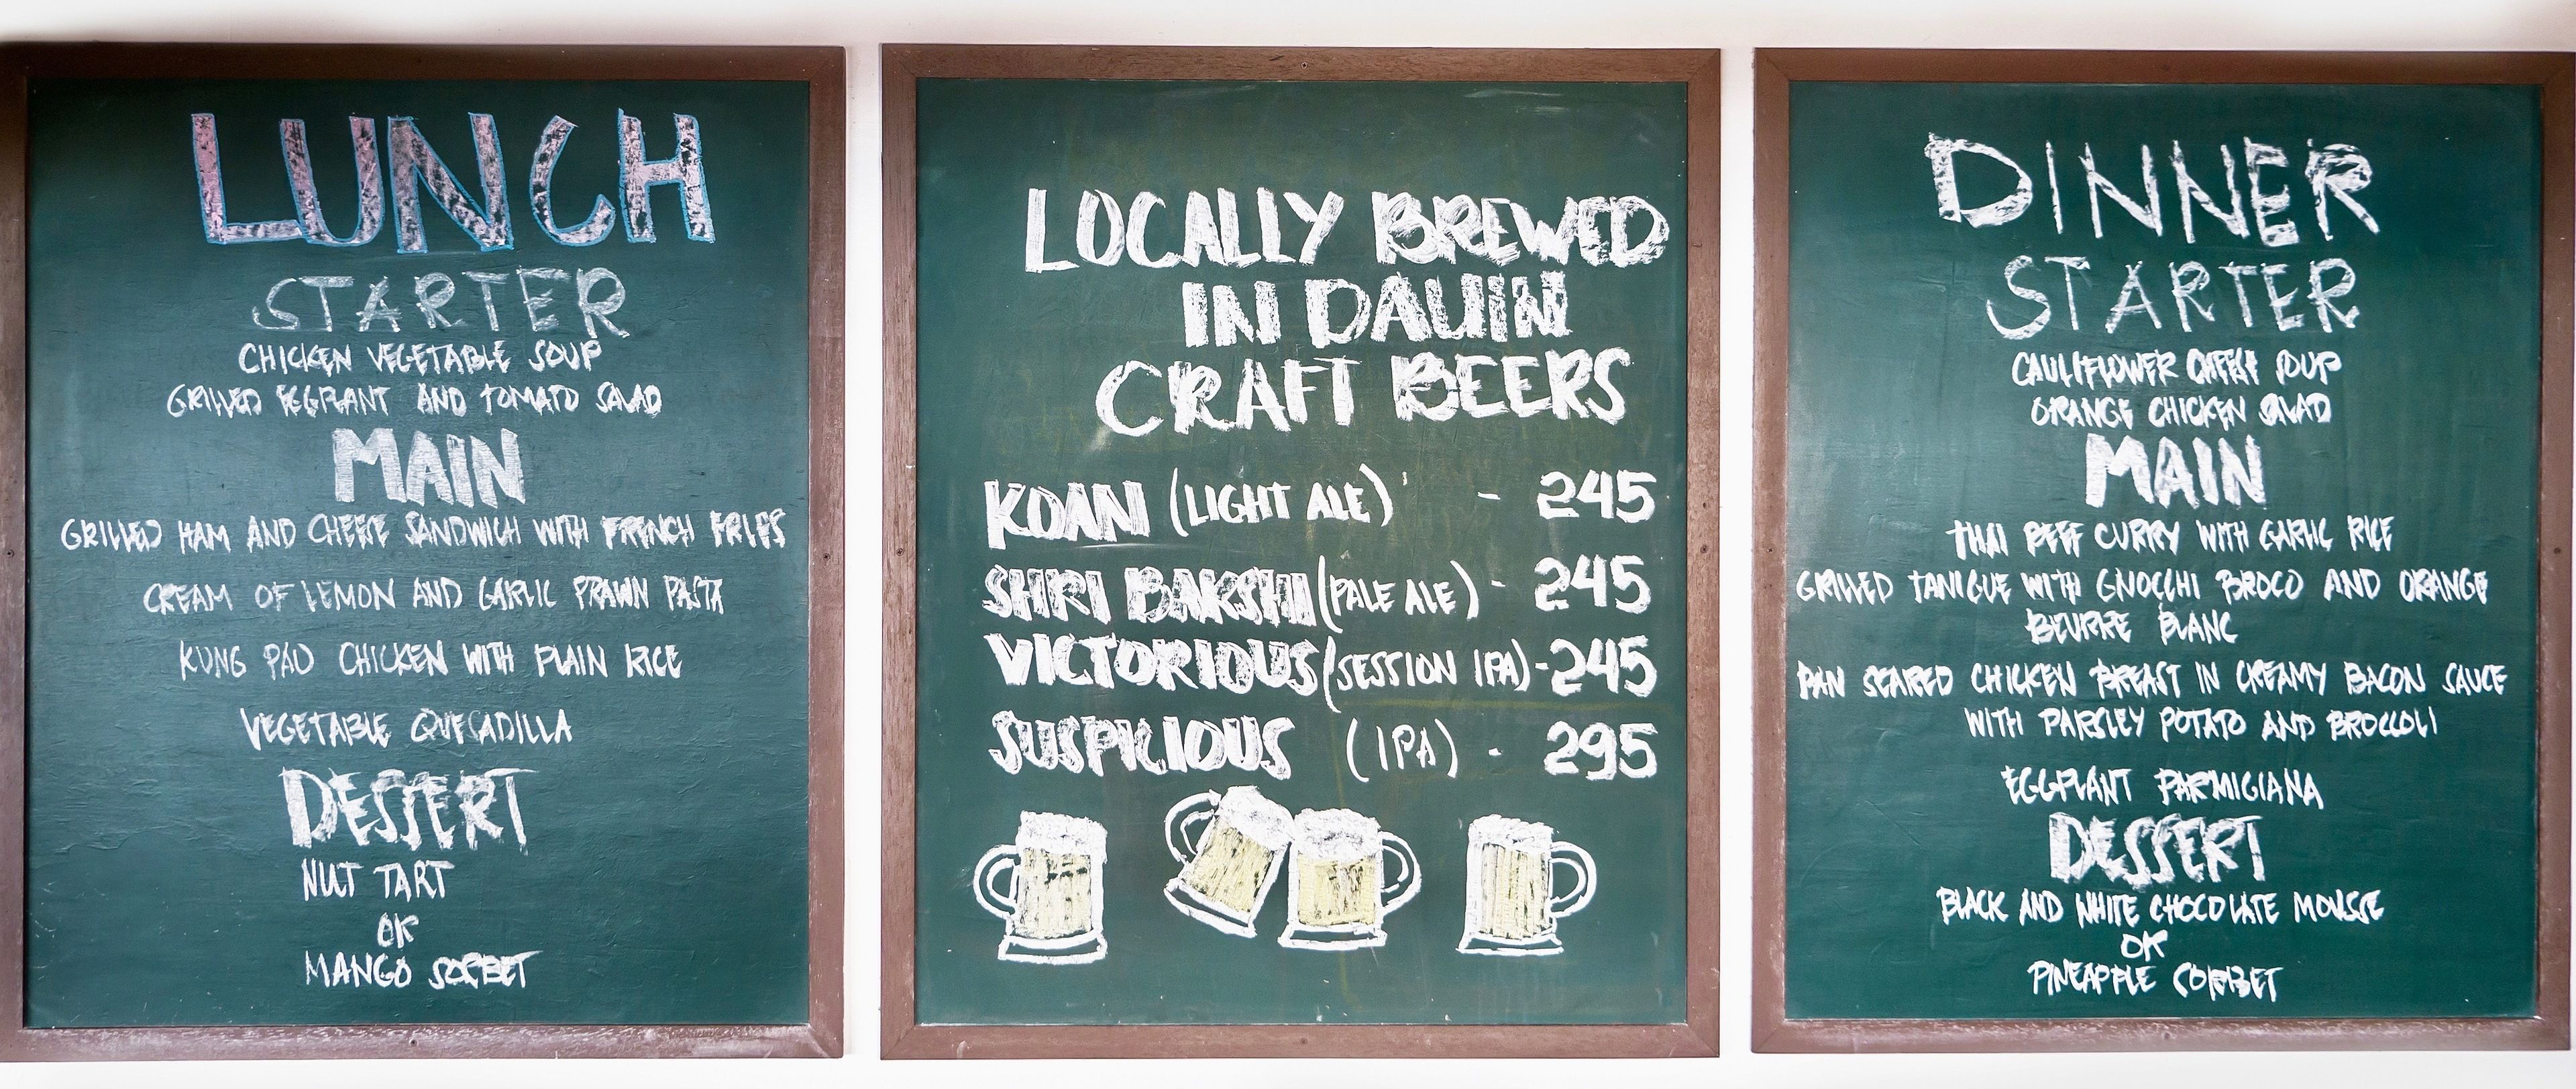 LUNCH
STARTER
CHICKEN VEGETABLE SOUP
GRILLED EGGPLANT AND TOMATO SALAD
MAIN
GRILLED HAM AND CHEESE SANDWICH WITH FRENCH FRIES
CREAM OF LEMON AND GARLIC PRAWN PASTA
KUNG PAO CHICKEN WITH PLAIN RICE
VEGETABLE QUESADILLA
DESSERT
NUT TART
OR
MANGO SORBET
LOCALLY BREWED
IN DAUIN
CRAFT BEERS
KOAN (LIGHT ALE) - 245
SHRI BAKSHI (PALE ALE) - 245
VICTORIOUS (SESSION IPA) - 245
SUSPICIOUS (IPA) - 295
DINNER
STARTER
CAULIFLOWER CHEESE SOUP
ORANGE CHICKEN SALAD
MAIN
THAI BEEF CURRY WITH GARLIC RICE
GRILLED TANIGUE WITH GNOCCHI BROCO AND ORANGE
BEURRE BLANC
PAN SEARED CHICKEN BREAST IN CREAMY BACON SAUCE
WITH PARSLEY POTATO AND BROCCOLI
EGGPLANT PARMIGIANA
DESSERT
BLACK AND WHITE CHOCOLATE MOUSSE
OR
PINEAPPLE SORBET